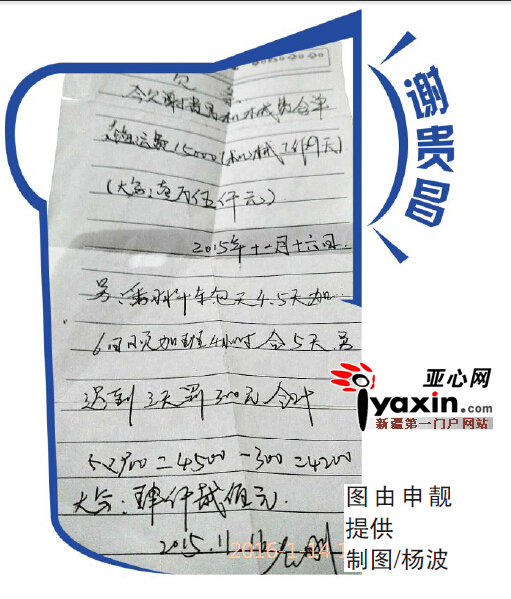 欠条
今欠谢贵昌机械铣合单
翻运费15000(机械工作9天)
(大写:壹万伍仟元)
2015年十一月十六日.
另:乘羽斗车包天4.5天加
6日晚加班4小时合5天 另
迟到3天罚300元 合计
5×900=4500-300=4200
大写:肆仟贰佰元.
2015.11.16
谢贵昌
亚心网
iyaxin.com
新疆第一门户网站
图由申靓
提供
制图/杨波